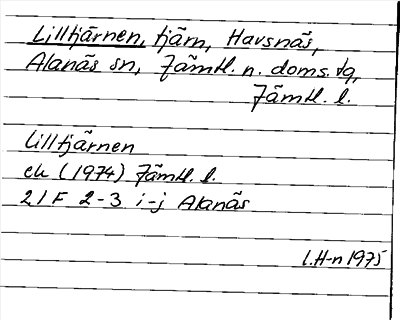 Lilltjärnen, tjärn, Havsnäs,
Alanäs sn, Jämtl. n. doms. dg,
Jämtl. l.
Lilltjärnen
ek (1974) Jämtl. l.
21F 2-3 i-j Alanäs
l.H-n 1975